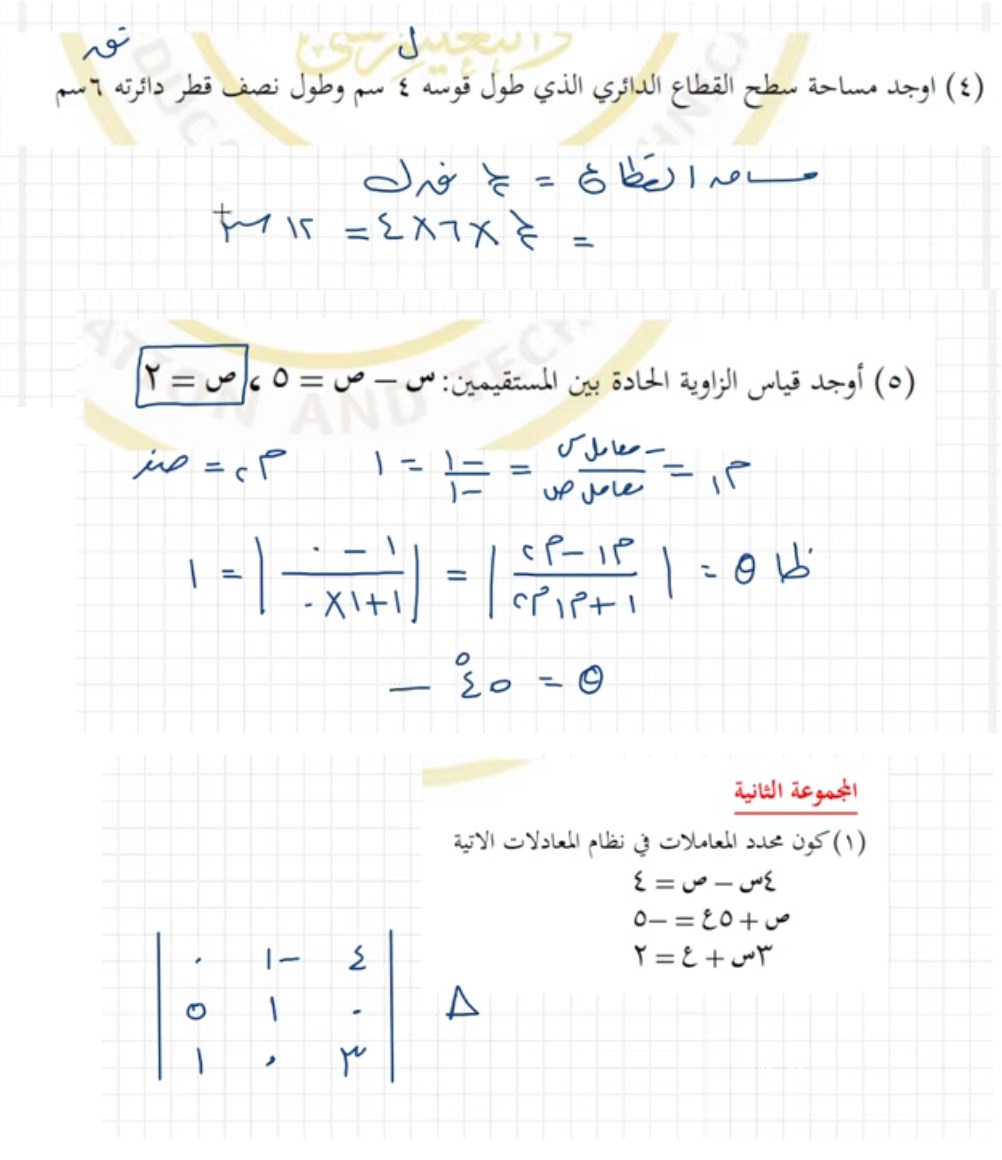 نق ل
(٤) اوجد مساحة سطح القطاع الدائري الذي طول قوسه ٤ سم وطول نصف قطر دائرته ٦ سم
مساحة القطاع = ½ نق ل
= ½ × ٦ × ٤ = ١٢ سم٢
(٥) أوجد قياس الزاوية الحادة بين المستقيمين: س − ص = ٥ ، ص = ٢
م١ = −معامل س / معامل ص = −١ / −١ = ١ م٢ = صفر
ظا θ = | م١ − م٢ / ١ + م١ م٢ | = | ١ − ٠ / ١ + ١ × ٠ | = ١
θ = ٤٥°
المجموعة الثانية
(١) كون محدد المعاملات في نظام المعادلات الاتية
٤س − ص = ٤
ص + ٥ع = −٥
٣س + ع = ٢
٤ −١ ٠
Δ ٠ ١ ٥
٣ ٠ ١